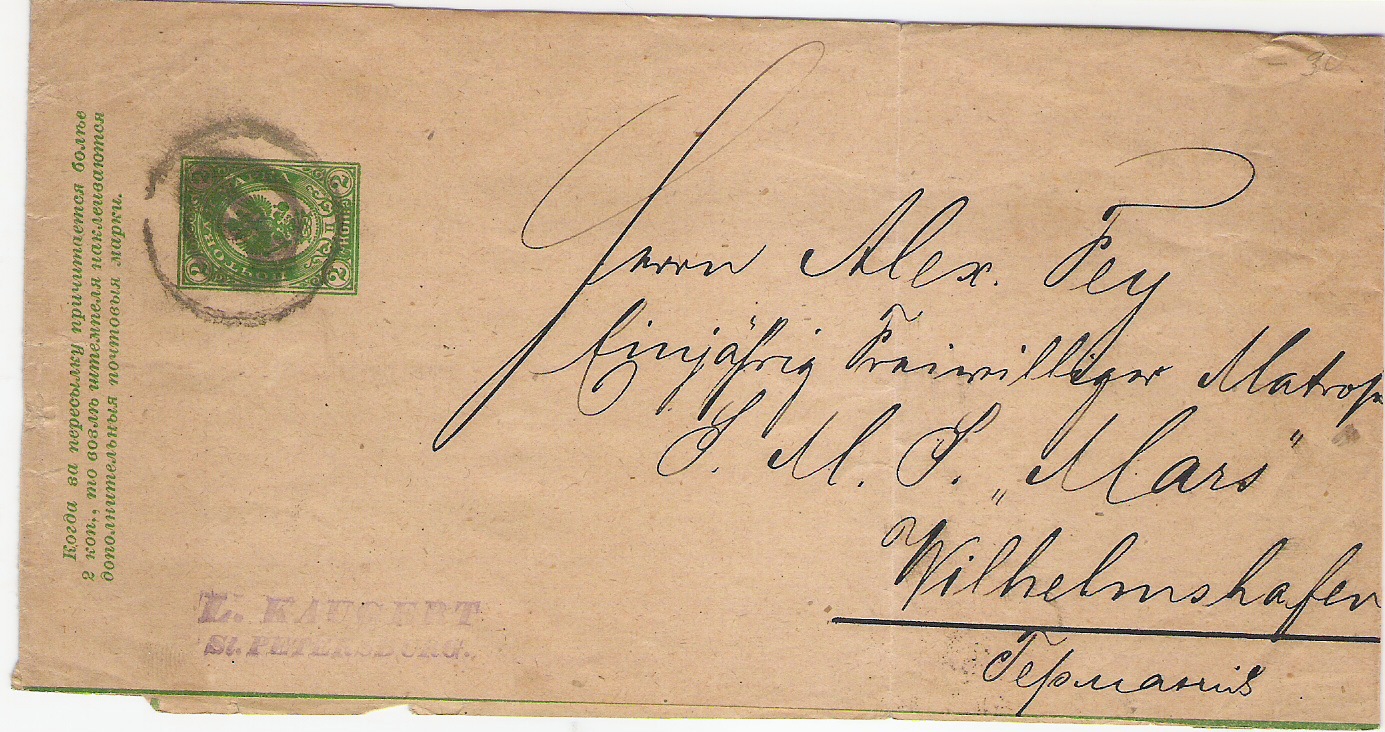 Когда за пересылку причитается болѣе
2 коп., то возлѣ штемпеля наклеиваются
дополнительныя почтовыя марки.
2 2 2
Herrn Alex. Fey
Einjährig Freiwilliger Matrose
S. M. S. „Mars"
Wilhelmshafen
Германія
St. PETERSBURG.